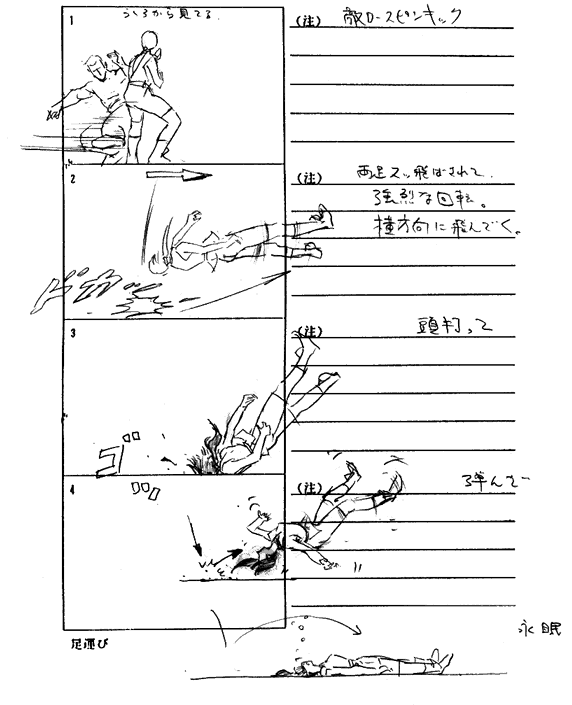 1
うしろから見てる
(注) 敵ロースピンキック
2
(注) 両足スッ飛ばされて、
強烈な回転。
横方向に飛んでく。
3
(注) 頭打って
ゴ
4
(注) 弾んで
足運び
永眠